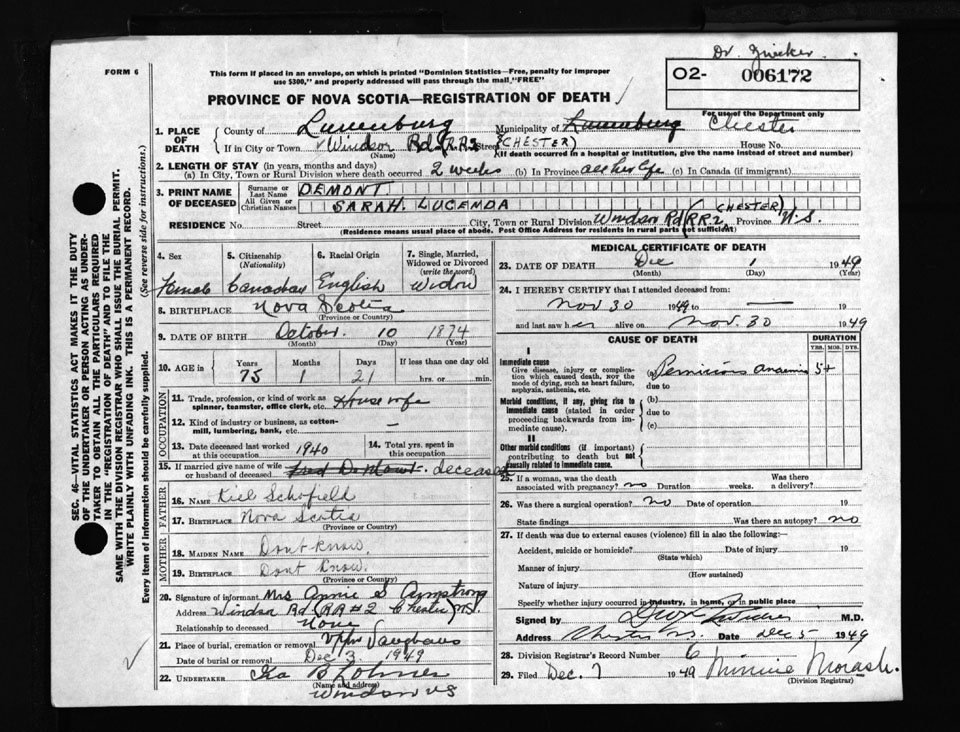 Dr. Zwicker
FORM 6
This form if placed in an envelope, on which is printed "Dominion Statistics—Free, penalty for improper
use $300," and properly addressed will pass through the mail "FREE"
O2- 006172
For use of the Department only
PROVINCE OF NOVA SCOTIA—REGISTRATION OF DEATH
1. PLACE OF DEATH
County of Lunenburg Municipality of Lunenburg Chester
If in City or Town Windsor Rd (R.R.2 Street (CHESTER) House No.
(Name) (If death occurred in a hospital or institution, give the name instead of street and number)
2. LENGTH OF STAY (in years, months and days)
(a) In City, Town or Rural Division where death occurred 2 weeks (b) In Province all her life (c) In Canada (if immigrant)
3. PRINT NAME OF DECEASED
Surname or Last Name DEMONT
All Given or Christian Names SARAH. LUCENDA
RESIDENCE No. Street City, Town or Rural Division Windsor Rd (R.R.2 CHESTER) Province N.S.
(Residence means usual place of abode. Post Office Address for residents in rural parts not sufficient)
4. Sex Female
5. Citizenship (Nationality) Canadian
6. Racial Origin English
7. Single, Married, Widowed or Divorced (write the word) Widow
8. BIRTHPLACE Nova Scotia
(Province or Country)
9. DATE OF BIRTH October 10 1874
(Month) (Day) (Year)
10. AGE in Years 75 Months 1 Days 21 If less than one day old hrs. or min.
OCCUPATION
11. Trade, profession, or kind of work as spinner, teamster, office clerk, etc. Housewife
12. Kind of industry or business, as cotton-mill, lumbering, bank, etc. —
13. Date deceased last worked at this occupation 1940
14. Total yrs. spent in this occupation
15. If married give name of wife or husband of deceased Fred DeMont. deceased
FATHER
16. NAME Kiel Schofield
17. BIRTHPLACE Nova Scotia
(Province or Country)
MOTHER
18. MAIDEN NAME Dont Know.
19. BIRTHPLACE Dont Know
(Province or Country)
20. Signature of informant Mrs Annie S Armstrong
Address Windsor Rd (RR #2 Chester NS.
Relationship to deceased None
21. Place of burial, cremation or removal Upper Vaughans
Date of burial or removal Dec 3 1949
22. UNDERTAKER Ira B Lohnes
(Name and address)
Windsor NS
MEDICAL CERTIFICATE OF DEATH
23. DATE OF DEATH Dec 1 1949
(Month) (Day) (Year)
24. I HEREBY CERTIFY that I attended deceased from:
Nov 30 1949 to — 19
and last saw her alive on Nov. 30 1949
CAUSE OF DEATH
DURATION
YRS. MOS. DYS.
I
Immediate cause
Give disease, injury or complication which caused death, NOT the mode of dying, such as heart failure, asphyxia, asthenia, etc.
(a) Pernicious anaemia 5+
due to
Morbid conditions, if any, giving rise to immediate cause (stated in order proceeding backwards from immediate cause).
(b)
due to
(c)
II
Other morbid conditions (if important) contributing to death but not causally related to immediate cause.
25. If a woman, was the death associated with pregnancy? no Duration weeks. Was there a delivery?
26. Was there a surgical operation? no Date of operation 19
State findings Was there an autopsy? no
27. If death was due to external causes (violence) fill in also the following:—
Accident, suicide or homicide? Date of injury 19
(State which)
Manner of injury
(How sustained)
Nature of injury
Specify whether injury occurred in industry, in home, or in public place
Signed by M.D.
Address Chester NS. Date Dec 5 1949
28. Division Registrar's Record Number 61
29. Filed Dec. 7 1949 Minnie Morash.
(Division Registrar)
SEC. 46—VITAL STATISTICS ACT MAKES IT THE DUTY
OF THE UNDERTAKER OR PERSON ACTING AS UNDER-
TAKER TO OBTAIN ALL THE PARTICULARS REQUIRED
IN THE "REGISTRATION OF DEATH" AND TO FILE THE
SAME WITH THE DIVISION REGISTRAR WHO SHALL ISSUE THE BURIAL PERMIT.
WRITE PLAINLY WITH UNFADING INK. THIS IS A PERMANENT RECORD.
Every item of information should be carefully supplied. (See reverse side for instructions.)